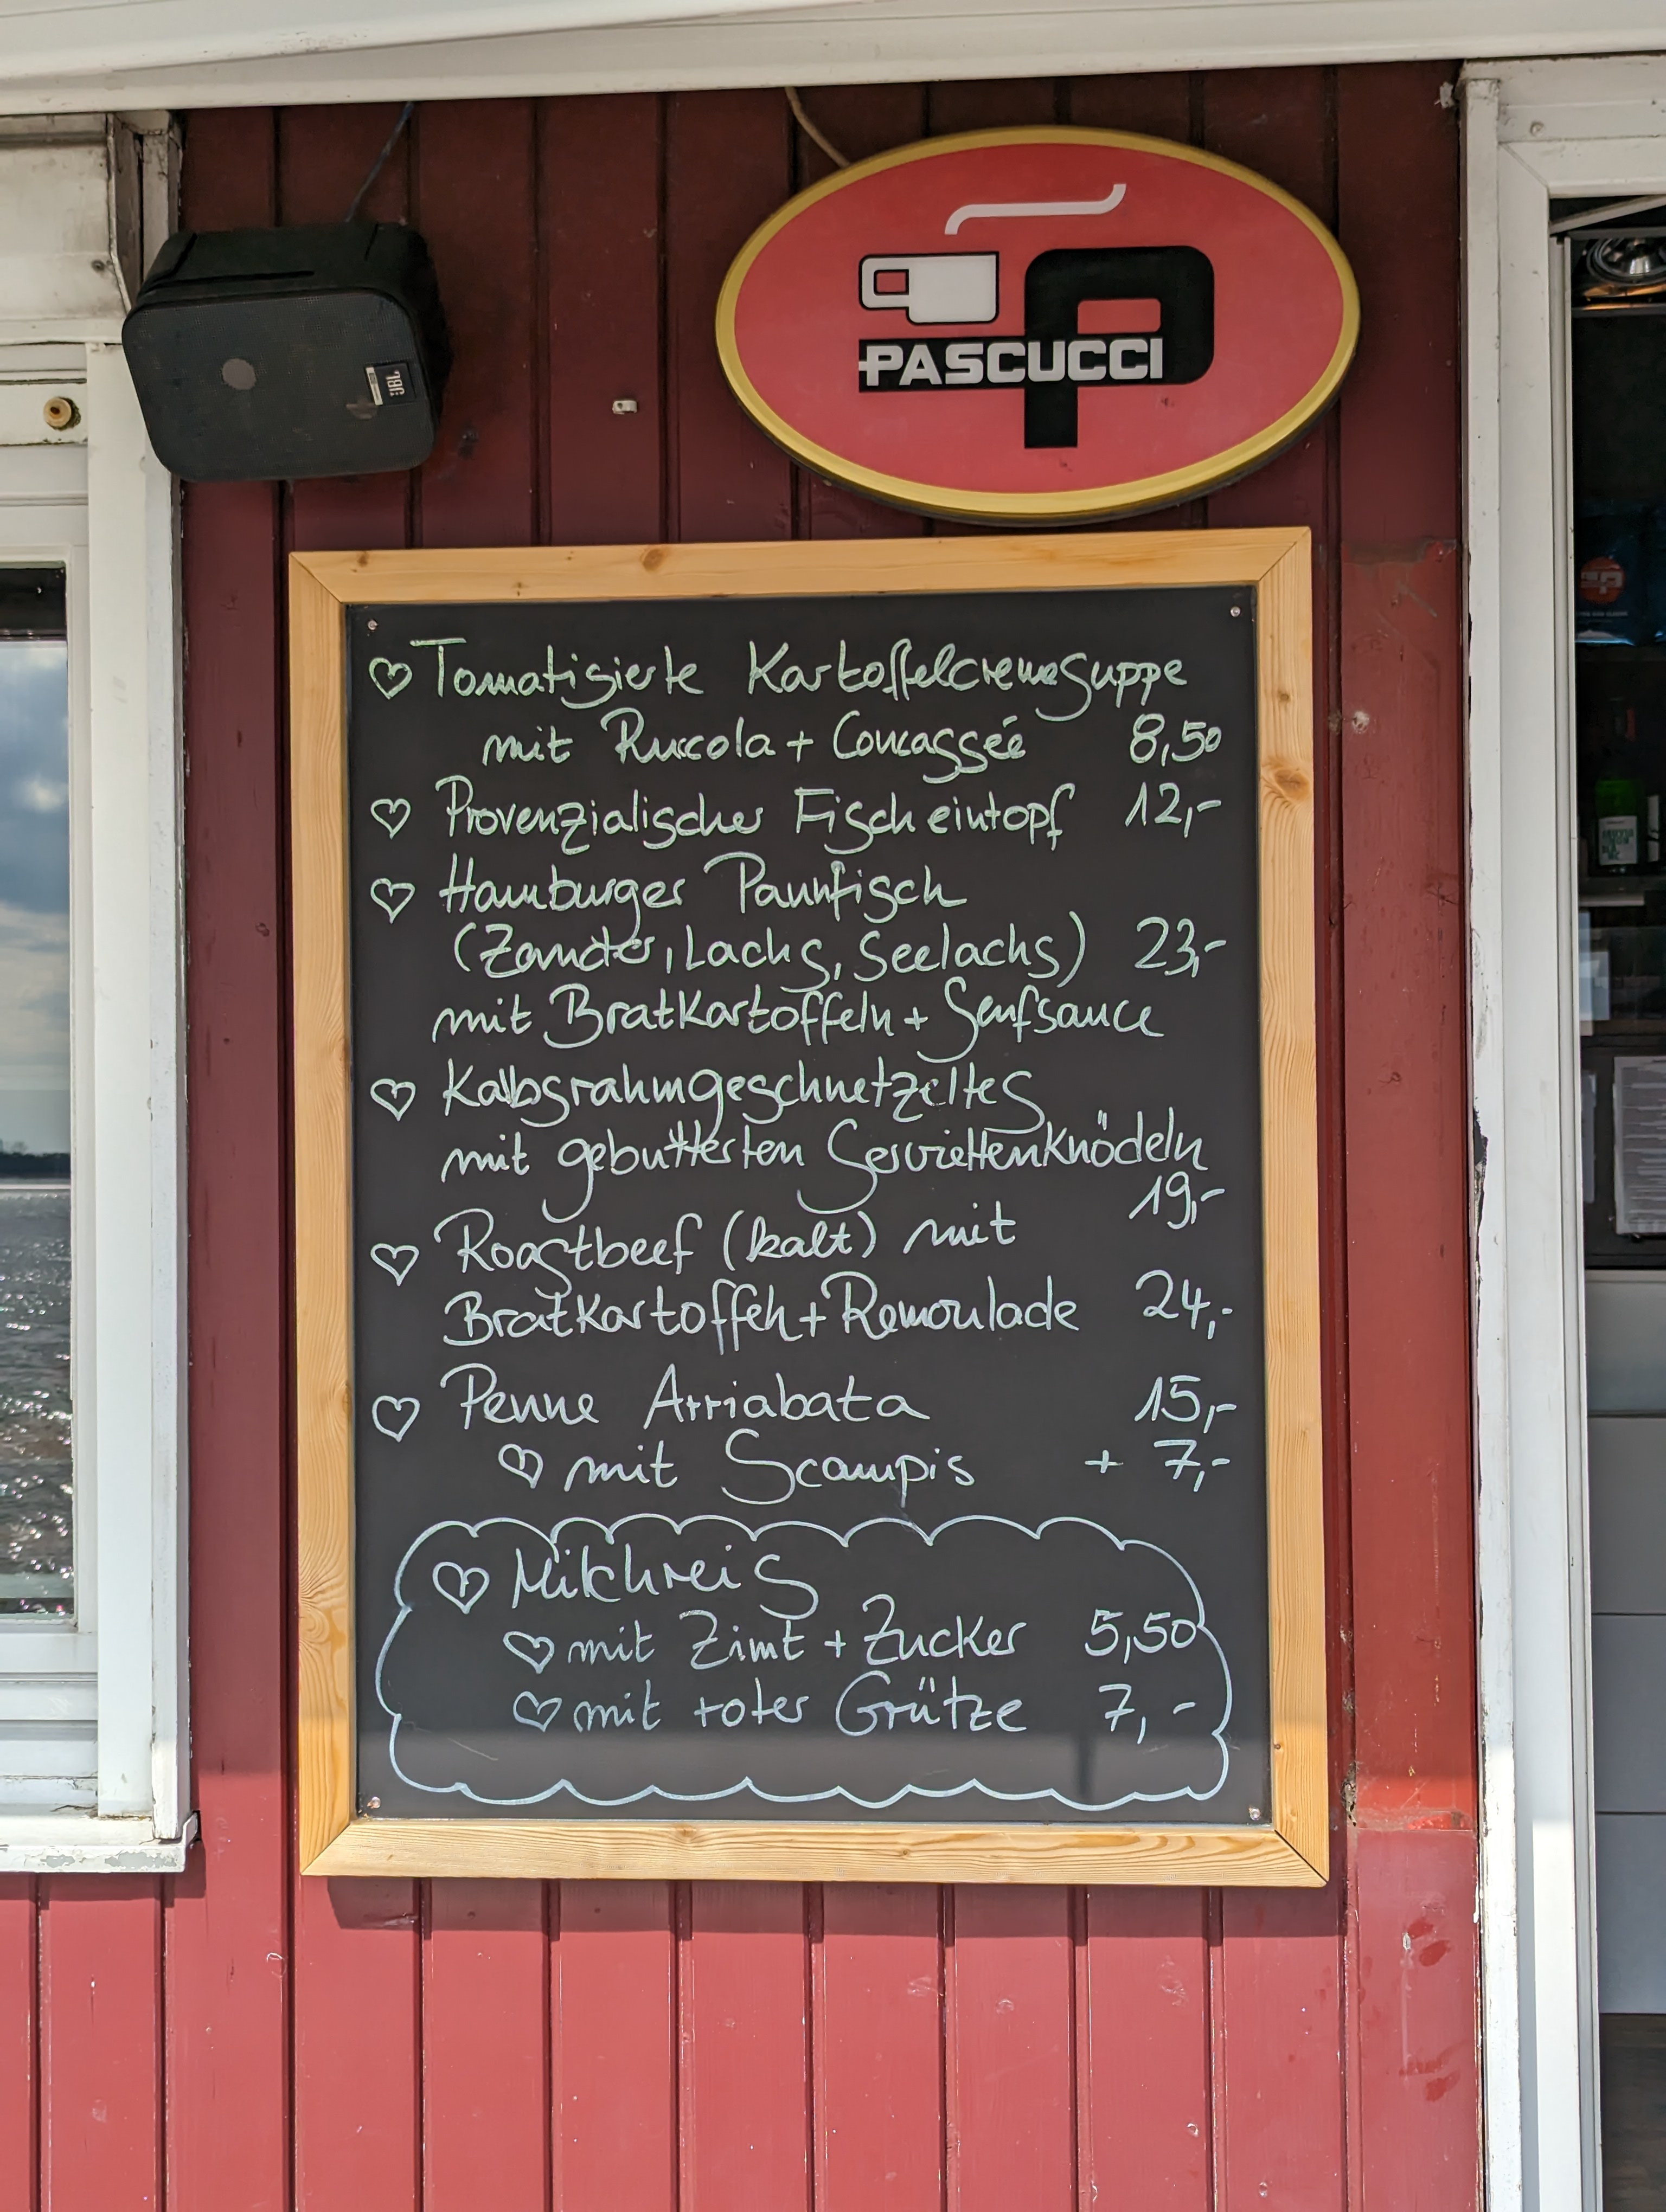 JBL
PASCUCCI
Tomatisierte Kartoffelcremesuppe
mit Rucola + Concassée 8,50
Provenzialischer Fischeintopf 12,-
Hamburger Pannfisch
(Zander, Lachs, Seelachs) 23,-
mit Bratkartoffeln + Senfsauce
Kalbsrahmgeschnetzeltes
mit gebutterten Serviettenknödeln
19,-
Roastbeef (kalt) mit
Bratkartoffeln + Remoulade 24,-
Penne Arriabata 15,-
mit Scampis + 7,-
Milchreis
mit Zimt + Zucker 5,50
mit roter Grütze 7,-